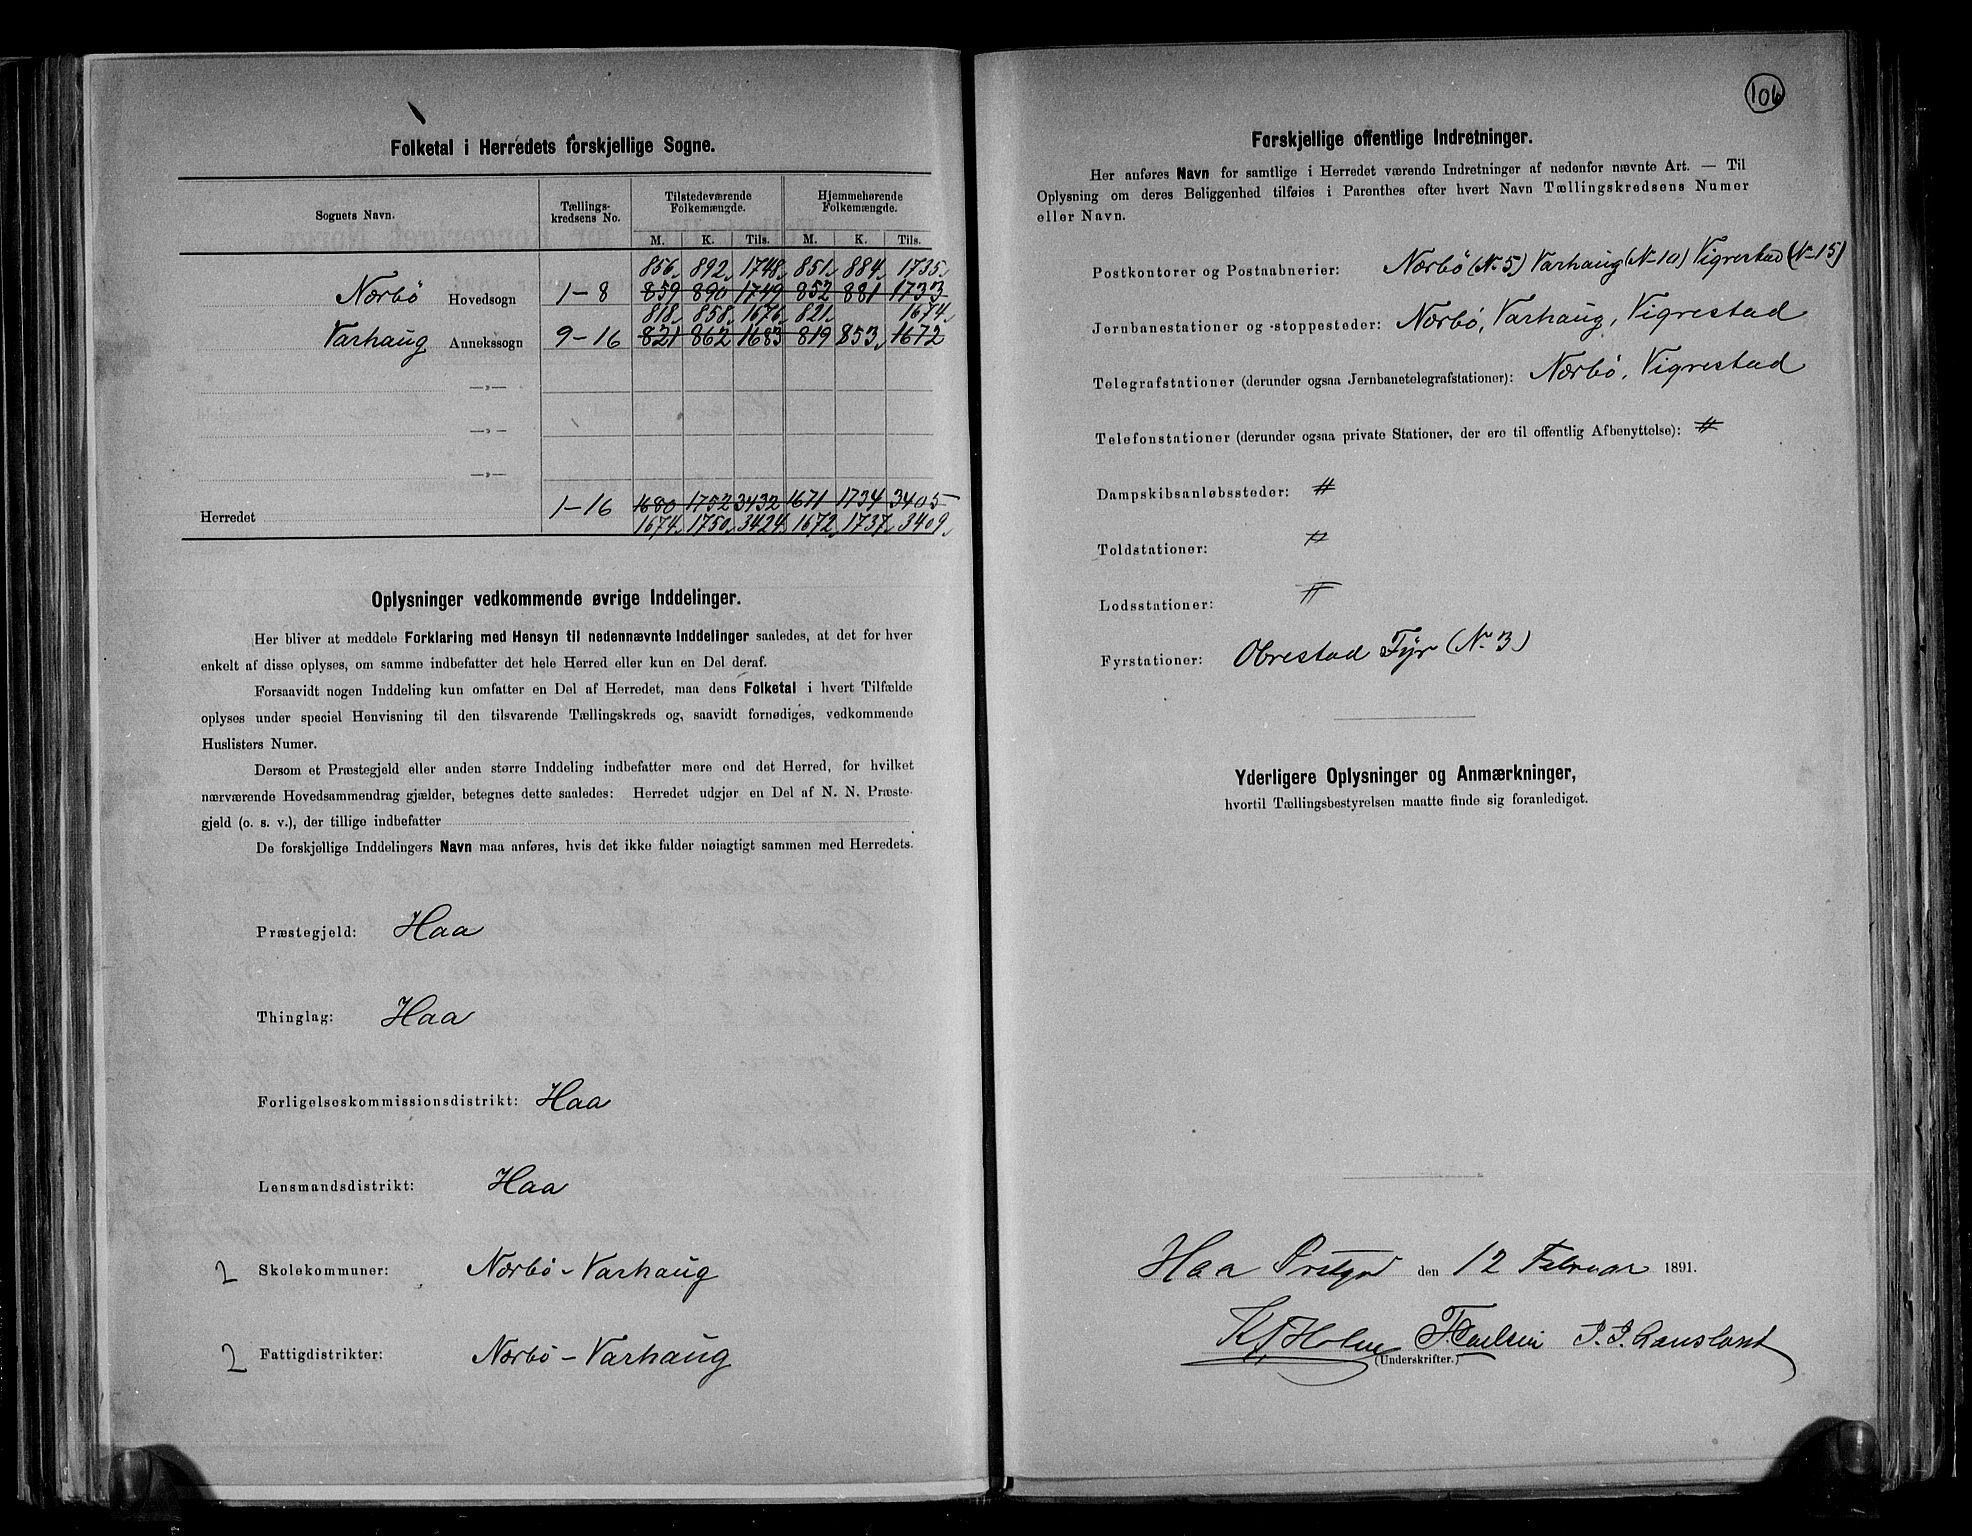 Folketal i Herredets forskjellige Sogne.
Sognets Navn. Tællings- kredsens No. Tilstedeværende Folkemængde. Hjemmehørende Folkemængde.
M. K. Tils. M. K. Tils.
856 892 1748 851 884 1735
Nærbö Hovedsogn 1-8 859 890 1749 852 881 1733
818 858 1676 821 1674
Varhaug Annekssogn 9-16 821 862 1683 819 853 1672
—„—
—„—
—„—
Herredet 1-16 1680 1752 3432 1671 1734 3405
1674 1750 3424 1672 1737 3409
Oplysninger vedkommende øvrige Inddelinger.
Her bliver at meddele Forklaring med Hensyn til nedennævnte Inddelinger saaledes, at det for hver
enkelt af disse oplyses, om samme indbefatter det hele Herred eller kun en Del deraf.
Forsaavidt nogen Inddeling kun omfatter en Del af Herredet, maa dens Folketal i hvert Tilfælde
oplyses under speciel Henvisning til den tilsvarende Tællingskreds og, saavidt fornødiges, vedkommende
Huslisters Numer.
Dersom et Præstegjeld eller anden større Inddeling indbefatter mere end det Herred, for hvilket
nærværende Hovedsammendrag gjælder, betegnes dette saaledes: Herredet udgjør en Del af N. N. Præste-
gjeld (o. s. v.), der tillige indbefatter
De forskjellige Inddelingers Navn maa anføres, hvis det ikke falder nøiagtigt sammen med Herredets.
Præstegjeld: Haa
Thinglag: Haa
Forligelseskommissionsdistrikt: Haa
Lensmandsdistrikt: Haa
2 Skolekommuner: Nærbö-Varhaug
2 Fattigdistrikter: Nærbö-Varhaug
106
Forskjellige offentlige Indretninger.
Her anføres Navn for samtlige i Herredet værende Indretninger af nedenfor nævnte Art. — Til
Oplysning om deres Beliggenhed tilføies i Parenthes efter hvert Navn Tællingskredsens Numer
eller Navn.
Postkontorer og Postaabnerier: Nærbö (N. 5) Varhaug (N. 10) Vigrestad (N. 15)
Jernbanestationer og -stoppesteder: Nærbö, Varhaug, Vigrestad
Telegrafstationer (derunder ogsaa Jernbanetelegrafstationer): Nærbö, Vigrestad
Telefonstationer (derunder ogsaa private Stationer, der ere til offentlig Afbenyttelse): #
Dampskibsanløbssteder: #
Toldstationer:
Lodsstationer:
Fyrstationer: Obrestad Fyr (N. 3)
Yderligere Oplysninger og Anmærkninger,
hvortil Tællingsbestyrelsen maatte finde sig foranlediget.
Haa den 12 Februar 1891.
Holm
(Underskrifter.)